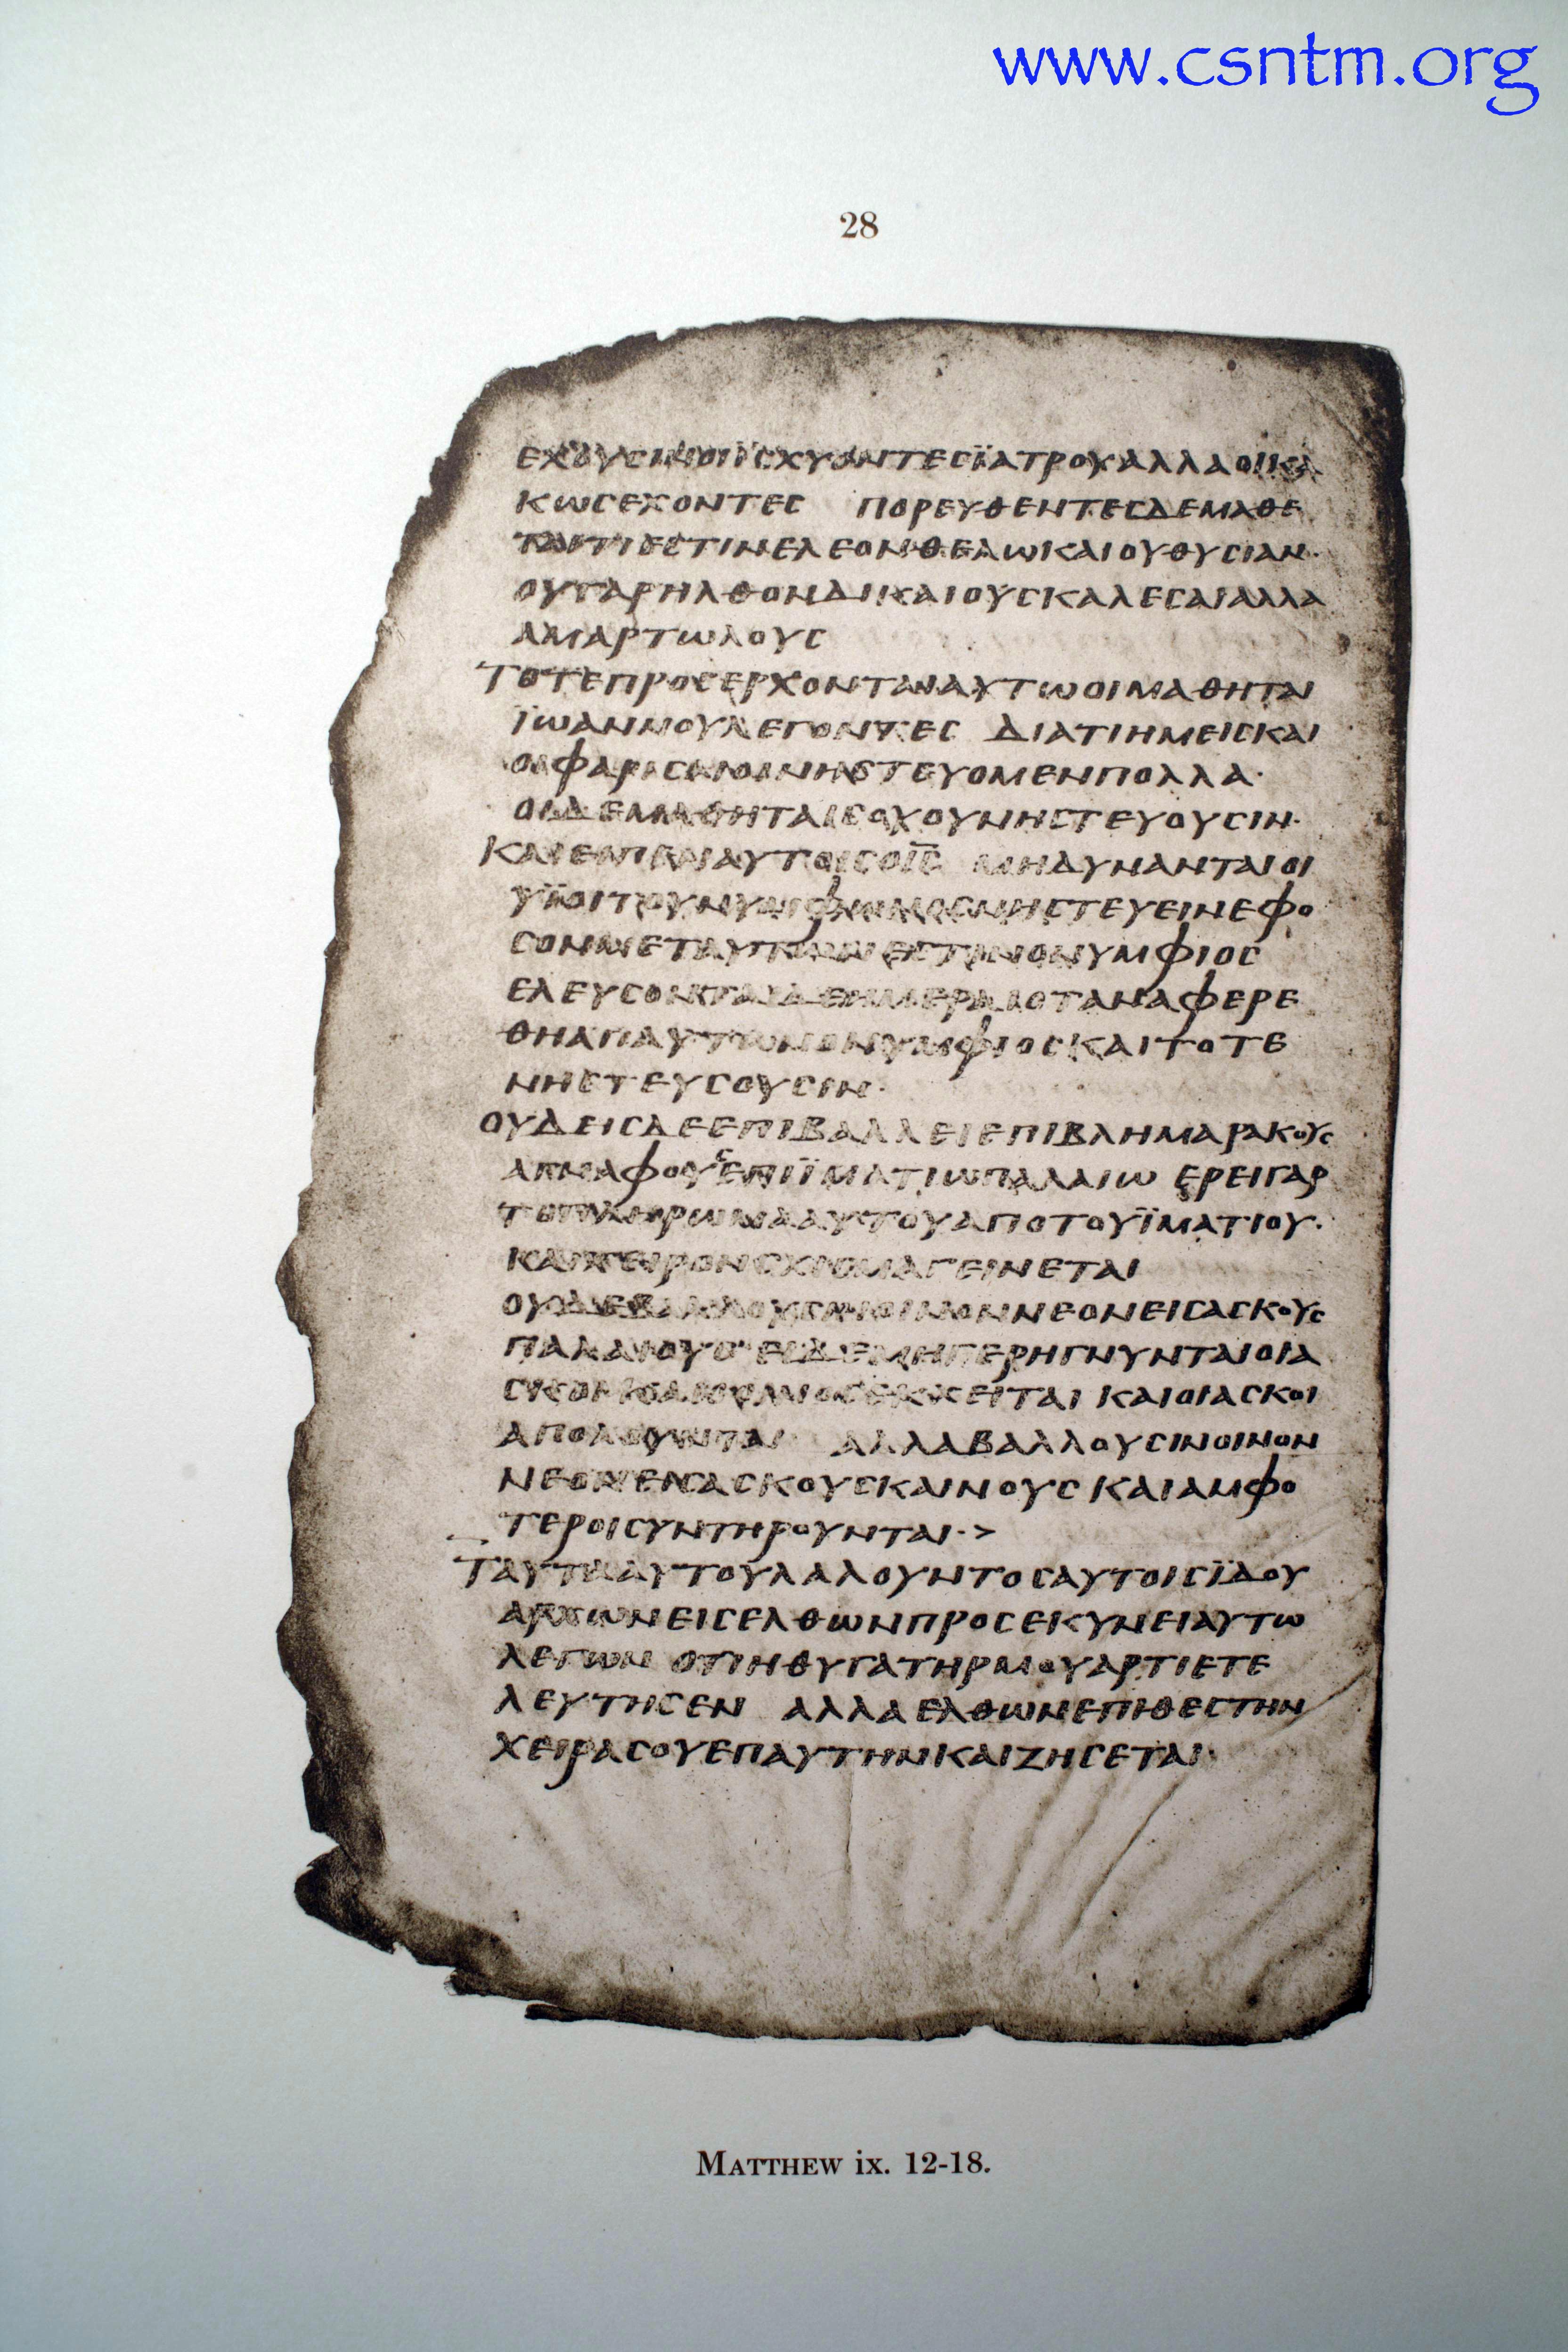 www.csntm.org
28
ΕΧΟΥϹΙΝΟΙΪϹΧΥΟΝΤΕϹΪΑΤΡΟΥΑΛΛΑΟΙΚΑ
ΚΩϹΕΧΟΝΤΕϹ ΠΟΡΕΥΘΕΝΤΕϹΔΕΜΑΘΕ
ΤΑΙΤΙΕϹΤΙΝΕΛΕΟΝΘΕΛΩΚΑΙΟΥΘΥϹΙΑΝ·
ΟΥΓΑΡΗΛΘΟΝΔΙΚΑΙΟΥϹΚΑΛΕϹΑΙΑΛΛΑ
ΑΜΑΡΤΩΛΟΥϹ
ΤΟΤΕΠΡΟϹΕΡΧΟΝΤΑΙΑΥΤΩΟΙΜΑΘΗΤΑΙ
ΪΩΑΝΝΟΥΛΕΓΟΝΤΕϹ ΔΙΑΤΙΗΜΕΙϹΚΑΙ
ΟΙΦΑΡΙϹΑΙΟΙΝΗϹΤΕΥΟΜΕΝΠΟΛΛΑ·
ΟΙΔΕΜΑΘΗΤΑΙϹΟΥΟΥΝΗϹΤΕΥΟΥϹΙΝ·
ΚΑΙΕΙΠΕΝΑΥΤΟΙϹΟΙ̅Ϲ̅ ΜΗΔΥΝΑΝΤΑΙΟΙ
ΥΪΟΙΤΟΥΝΥΜΦΩΝΟϹΝΗϹΤΕΥΕΙΝΕΦΟ
ϹΟΝΜΕΤΑΥΤΩΝΕϹΤΙΝΟΝΥΜΦΙΟϹ
ΕΛΕΥϹΟΝΤΑΙΔΕΗΜΕΡΑΙΟΤΑΝΑΦΕΡΕ
ΘΗΑΠΑΥΤΩΝΟΝΥΜΦΙΟϹΚΑΙΤΟΤΕ
ΝΗϹΤΕΥϹΟΥϹΙΝ·
ΟΥΔΕΙϹΔΕΕΠΙΒΑΛΛΕΙΕΠΙΒΛΗΜΑΡΑΚΟΥϹ
ΑΓΝΑΦΟΥϹΕΠΙΪΜΑΤΙΩΠΑΛΑΙΩ ΕΡΕΙΓΑΡ
ΤΟΠΛΗΡΩΜΑΑΥΤΟΥΑΠΟΤΟΥΪΜΑΤΙΟΥ·
ΚΑΙΧΕΙΡΟΝϹΧΙϹΜΑΓΕΙΝΕΤΑΙ
ΟΥΔΕΒΑΛΛΟΥϹΙΝΟΙΝΟΝΝΕΟΝΕΙϹΑϹΚΟΥϹ
ΠΑΛΑΙΟΥϹ ΕΙΔΕΜΗΓΕΡΗΓΝΥΝΤΑΙΟΙΑ
ϹΚΟΙΚΑΙΟΟΙΝΟϹΕΚΧΕΙΤΑΙ ΚΑΙΟΙΑϹΚΟΙ
ΑΠΟΛΟΥΝΤΑΙ ΑΛΛΑΒΑΛΛΟΥϹΙΝΟΙΝΟΝ
ΝΕΟΝΕΙϹΑϹΚΟΥϹΚΑΙΝΟΥϹ ΚΑΙΑΜΦΟ
ΤΕΡΟΙϹΥΝΤΗΡΟΥΝΤΑΙ·>
ΤΑΥΤΑΑΥΤΟΥΛΑΛΟΥΝΤΟϹΑΥΤΟΙϹΪΔΟΥ
ΑΡΧΩΝΕΙϹΕΛΘΩΝΠΡΟϹΕΚΥΝΕΙΑΥΤΩ
ΛΕΓΩΝ ΟΤΙΗΘΥΓΑΤΗΡΜΟΥΑΡΤΙΕΤΕ
ΛΕΥΤΗϹΕΝ ΑΛΛΑΕΛΘΩΝΕΠΙΘΕϹΤΗΝ
ΧΕΙΡΑϹΟΥΕΠΑΥΤΗΝΚΑΙΖΗϹΕΤΑΙ·
MATTHEW ix. 12-18.